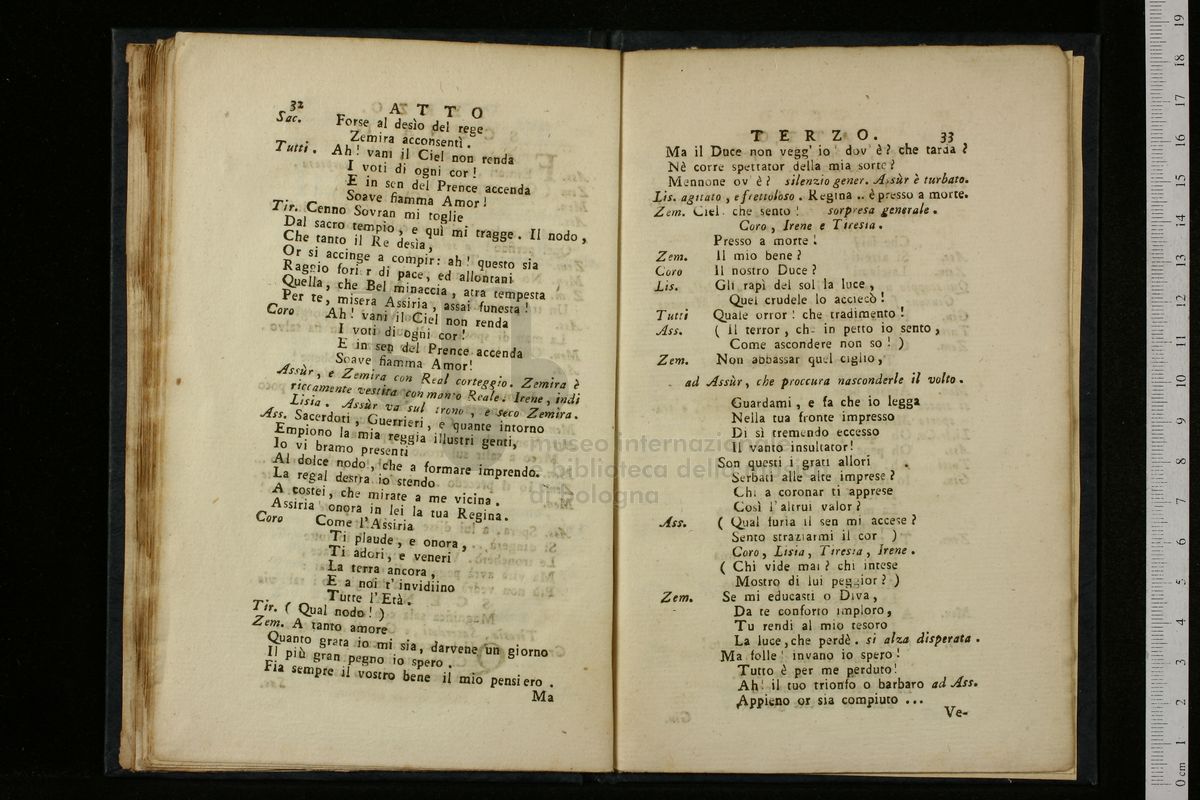 32
A T T O
Sac. Forse al desìo del rege
Zemira acconsentì.
Tutti. Ah! vani il Ciel non renda
I voti di ogni cor!
E in sen del Prence accenda
Soave fiamma Amor!
Tir. Cenno Sovran mi toglie
Dal sacro tempio, e quì mi tragge. Il nodo,
Che tanto il Re desìa,
Or si accinge a compir: ah! questo sia
Raggio forier di pace, ed allontani
Quella, che Bel minaccia, atra tempesta
Per te, misera Assiria, assai funesta!
Coro Ah! vani il Ciel non renda
I voti di ogni cor!
E in sen del Prence accenda
Soave fiamma Amor!
Assùr, e Zemira con Real corteggio. Zemira è
riccamente vestita con manto Reale. Irene, indi
Lisia. Assùr va sul trono, e seco Zemira.
Ass. Sacerdoti, Guerrieri, e quante intorno
Empiono la mia reggia illustri genti,
Io vi bramo presenti
Al dolce nodo, che a formare imprendo.
La regal destra io stendo
A costei, che mirate a me vicina.
Assiria onora in lei la tua Regina.
Coro Come l'Assiria
Ti plaude, e onora,
Ti adori, e veneri
La terra ancora,
E a noi t'invidiino
Tutte l'Età.
Tir. ( Qual nodo! )
Zem. A tanto amore
Quanto grata io mi sia, darvene un giorno
Il più gran pegno io spero.
Fia sempre il vostro bene il mio pensiero.
Ma
T E R Z O. 33
Ma il Duce non vegg' io! dov' è? che tarda?
Nè corre spettator della mia sorte?
Mennone ov è? silenzio gener. Assùr è turbato.
Lis. agitato, e frettoloso. Regina .. è presso a morte.
Zem. Ciel. che sento! sorpresa generale.
Coro, Irene e Tiresia.
Presso a morte!
Zem. Il mio bene?
Coro Il nostro Duce?
Lis. Gli rapì del sol la luce,
Quei crudele lo acciecò!
Tutti Quale orror! che tradimento!
Ass. ( Il terror, che in petto io sento,
Come ascondere non so! )
Zem. Non abbassar quel ciglio,
ad Assùr, che proccura nasconderle il volto.
Guardami, e fa che io legga
Nella tua fronte impresso
Di sì tremendo eccesso
Il vanto insultator!
Son questi i grati allori
Serbati alle alte imprese?
Chi a coronar ti apprese
Così l'altrui valor?
Ass. ( Qual furia il sen mi accese?
Sento straziarmi il cor )
Coro, Lisia, Tiresia, Irene.
( Chi vide mai? chi intese
Mostro di lui peggior? )
Zem. Se mi educasti o Diva,
Da te conforto imploro,
Tu rendi al mio tesoro
La luce, che perdè. si alza disperata.
Ma folle! invano io spero!
Tutto è per me perduto!
Ah! il tuo trionfo o barbaro ad Ass.
Appieno or sia compiuto ...
Ve-
museo internazionale
e biblioteca della musica
di bologna
0 cm 1 2 3 4 5 6 7 8 9 10 11 12 13 14 15 16 17 18 19